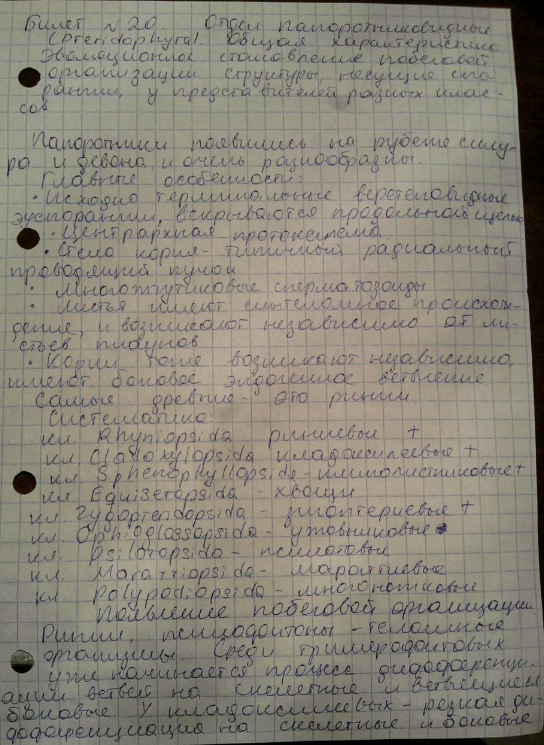 Билет №20. Отдел папоротниковидные
(Pteridophyta). Общая характеристика
Эволюционное становление побеговой
организации. структуры, несущие спо-
рангии, у представителей разных клас-
сов
Папоротники появились на рубеже силу-
ра и девона, и очень разнообразны.
Главные особенности:
• Исходно терминальные веретеновидные
эуспорангии, вскрываются продольной щелью
• Центрархная протоксилема
• Стела корня - типичный радиальный
проводящий пучок
• Многожгутиковые сперматозоиды
• Листья имеют синтеломное происхож-
дение, и возникают независимо от ли-
стьев плаунов
• Корни тоже возникают независимо,
имеют боковое эндогенное ветвление
Самые древние - это ринии
Систематика:
кл. Rhyniopsida риниевые +
кл. Cladoxylopsida кладоксилеевые +
кл. Sphenophyllopsida - клинолистниковые +
кл. Equisetopsida - хвощи
кл. Zygopteridopsida - зигоптериевые +
кл. Ophioglossopsida - ужовниковые
кл. Psilotopsida - псилотовые
кл. Marattiopsida - мараттиевые
кл. Polypodiopsida - многоножковые
Появление побеговой организации
Ринии, псилофитоны - теломные
организмы. Среди тримерофитовых
уже начинается процесс дифференци-
ации ветвей на скелетные и
боковые. У кладоксилеевых - резкая ди-
фференциация на скелетные и боковые